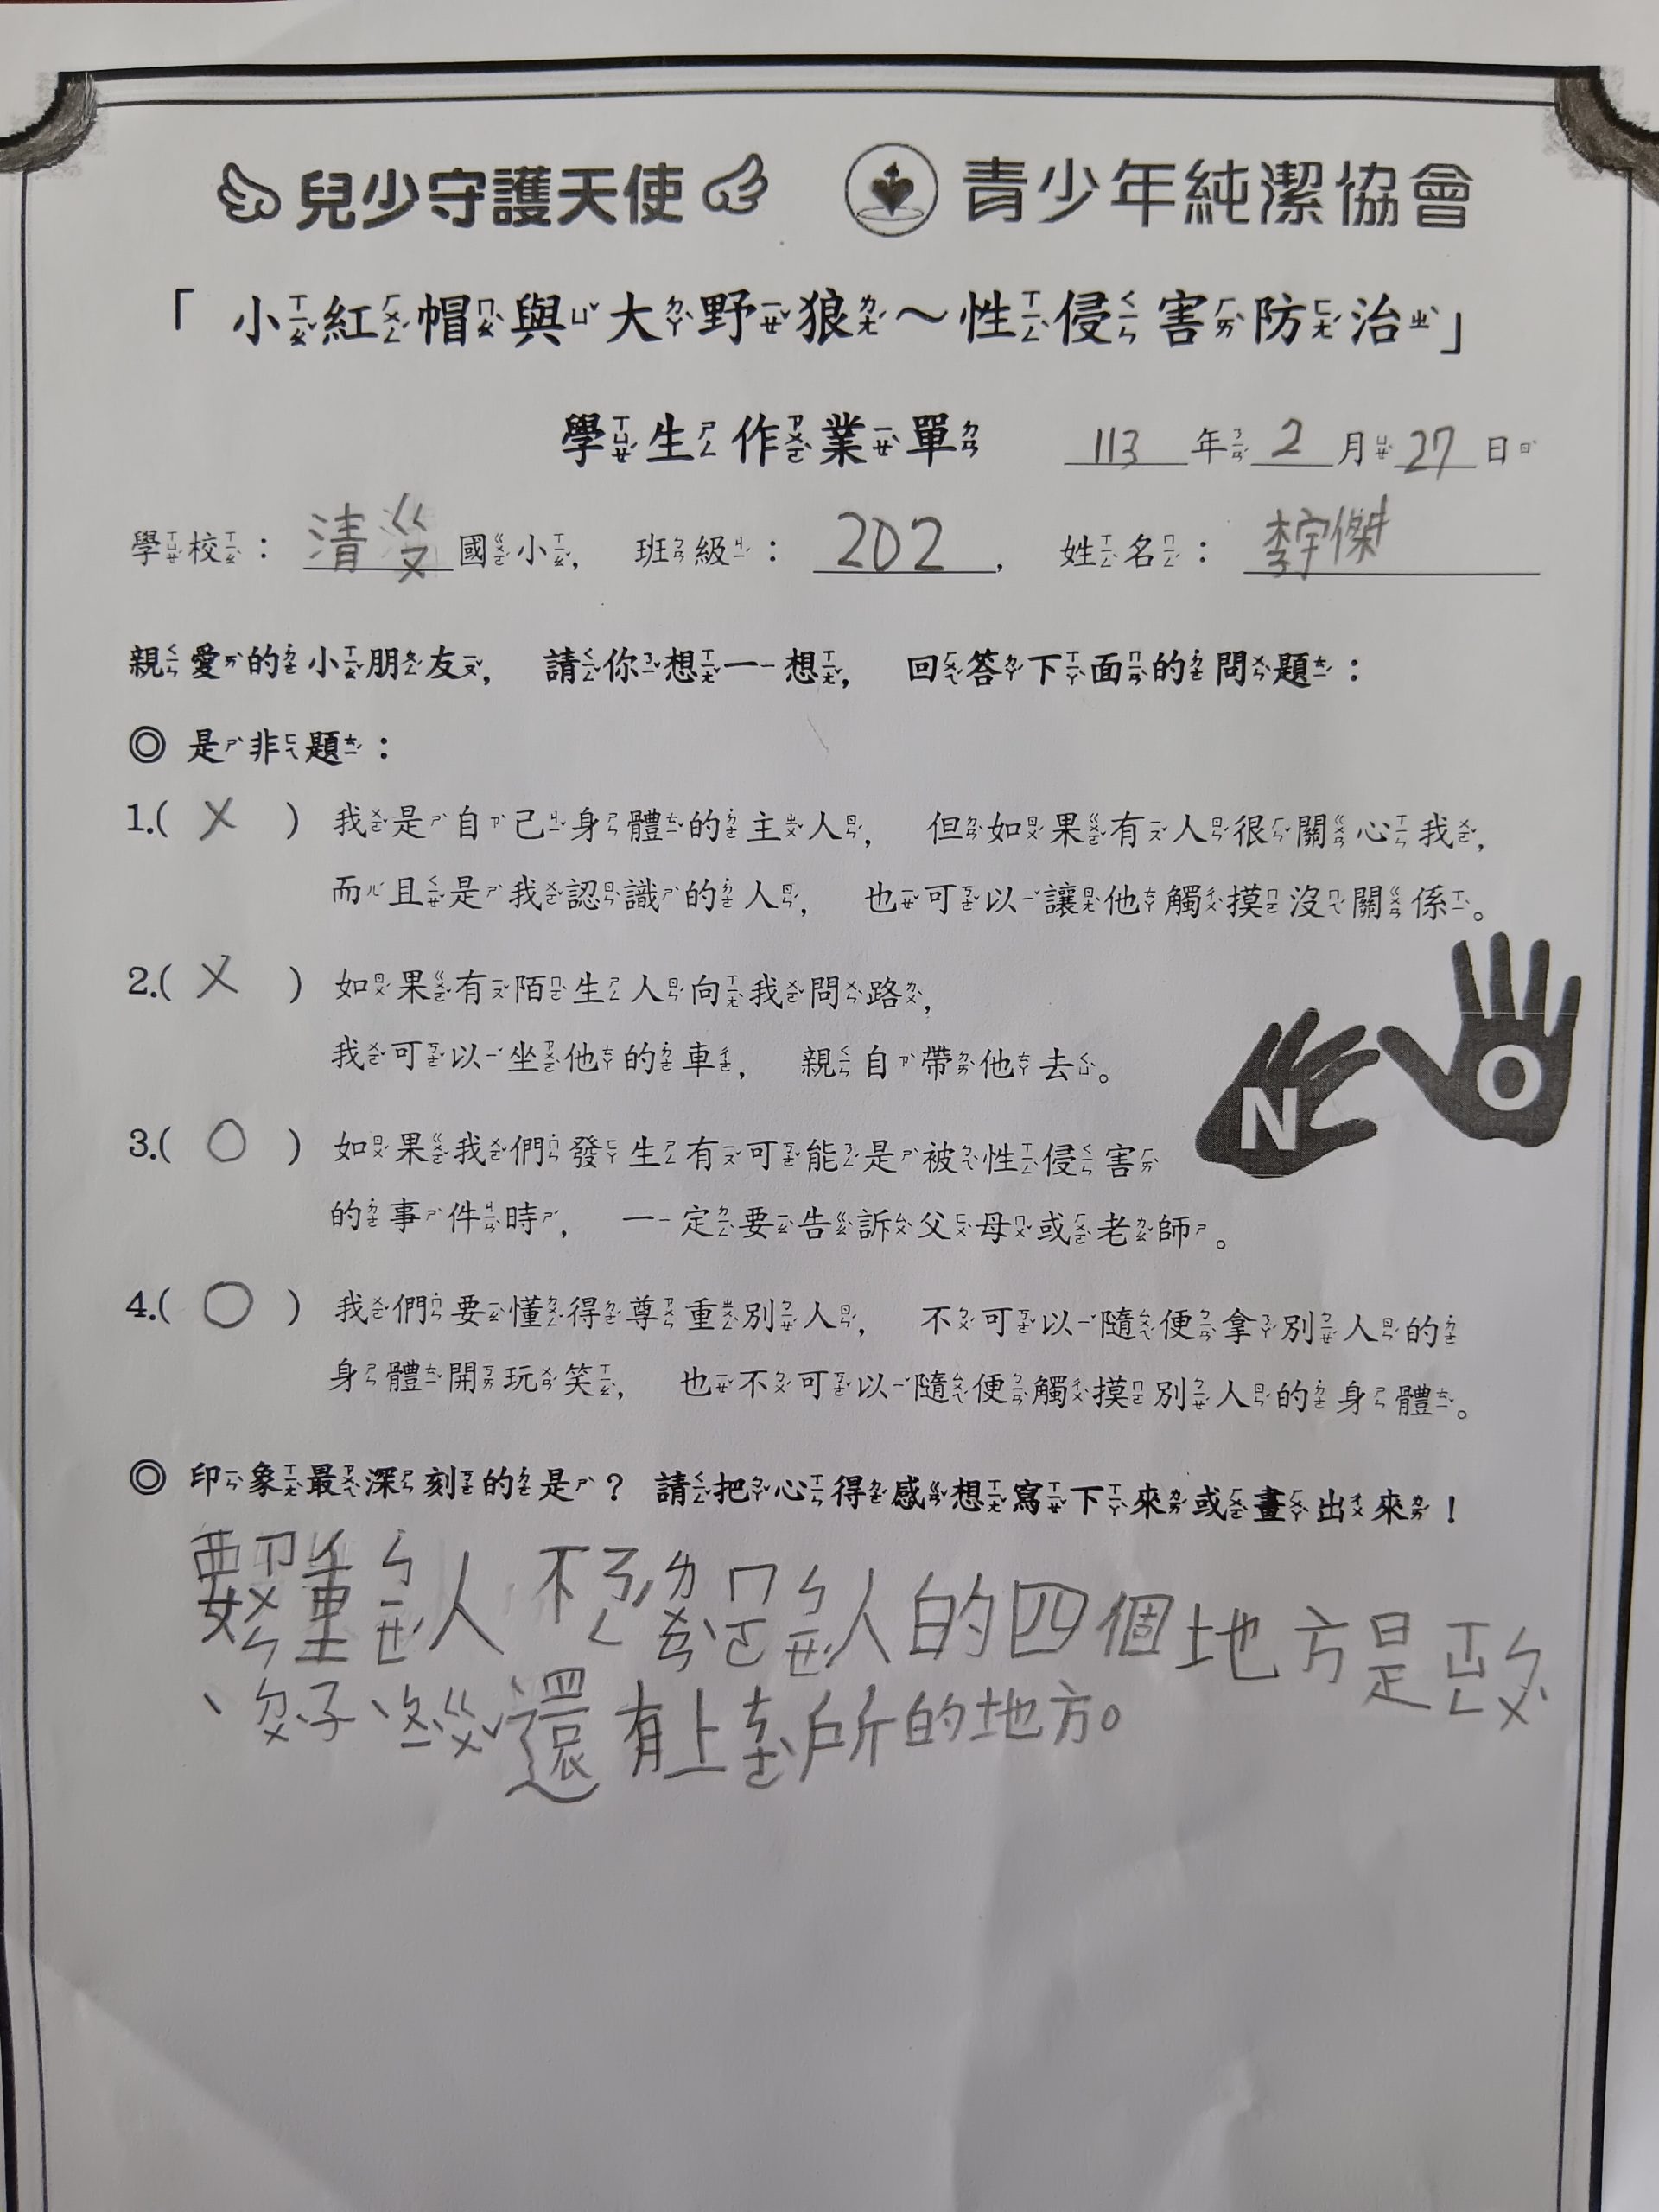 兒少守護天使 青少年純潔協會
「小紅帽與大野狼～性侵害防治」
學生作業單 113年2月27日
學校：清ㄍㄡ國小， 班級：202， 姓名：李宇傑
親愛的小朋友， 請你想一想， 回答下面的問題：
◎ 是非題：
1.( X ) 我是自己身體的主人， 但如果有人很關心我，
而且是我認識的人， 也可以讓他觸摸沒關係。
2.( X ) 如果有陌生人向我問路，
我可以坐他的車， 親自帶他去。
3.( O ) 如果我們發生有可能是被性侵害
的事件時， 一定要告訴父母或老師。
4.( O ) 我們要懂得尊重別人， 不可以隨便拿別人的
身體開玩笑， 也不可以隨便觸摸別人的身體。
N O
◎ 印象最深刻的是？ 請把心得感想寫下來或畫出來！
要ㄗㄨㄣ重ㄅㄧㄝˊ人 不ㄋㄥˊ ㄇㄛ ㄅㄧㄝˊ人的四個地方是ㄒㄩㄥ ㄅㄨˋ
、ㄉㄨˋ子、ㄆㄧˋㄍㄨˇ還有上ㄘㄜˋ所的地方。